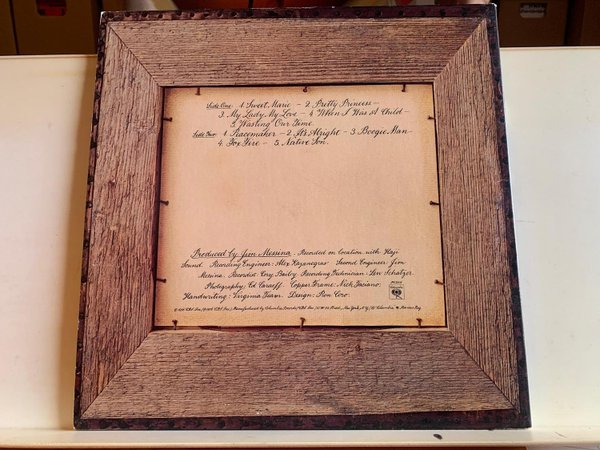 Side One 1. Sweet Marie – 2. Pretty Princess –
3. My Lady, My Love – 4. When I Was A Child –
5. Wasting Our Time.
Side Two 1. Peacemaker – 2. It's Alright – 3. Boogie Man –
4. Fox Fire – 5. Native Son.
Produced by Jim Messina. Recorded on Location with Haji
Sound. Recording Engineer: Alex Kazanegras Second Engineer: Jim
Messina. Recordist: Corey Bailey. Recording Technician: Len Schatzer.
Photography: Ed Caraeff. Copper Frame: Nick Faciano.
Handwriting: Virginia Team. Design: Ron Coro.
Manufactured by Columbia Records/CBS Inc. New York, N.Y.